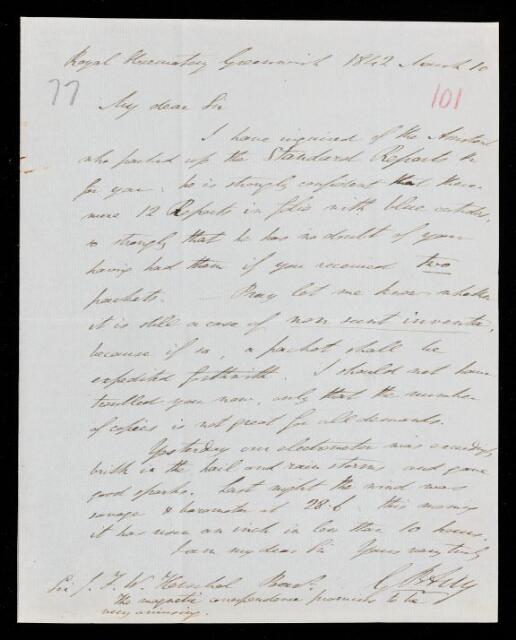 Royal Observatory Greenwich 1842 March 10
77
101
My dear Sir
I have inquired of the Assistant
who packed up the Standard Reports &c
for you: he is strongly confident that there
were 12 Reports in folio with blue outsides,
so strongly that he has no doubt of your
having had them if you received two
packets. — Pray let me know whether
it is still a case of non sunt inventa,
because if so, a packet shall be
expedited forthwith. I should not have
troubled you now, only that the number
of copies is not great for all demands.
Yesterday our electrometer was exceedingly
brisk in the hail and rain storms, and gave
good sparks. Last night the wind was
savage & barometer at 28.6 this morning
it has risen an inch in less than 10 hours.
I am my dear Sir Yours very truly
Sir J. F. W. Herschel Bart. G B Airy
The magnetic correspondence promises to be
very amusing.